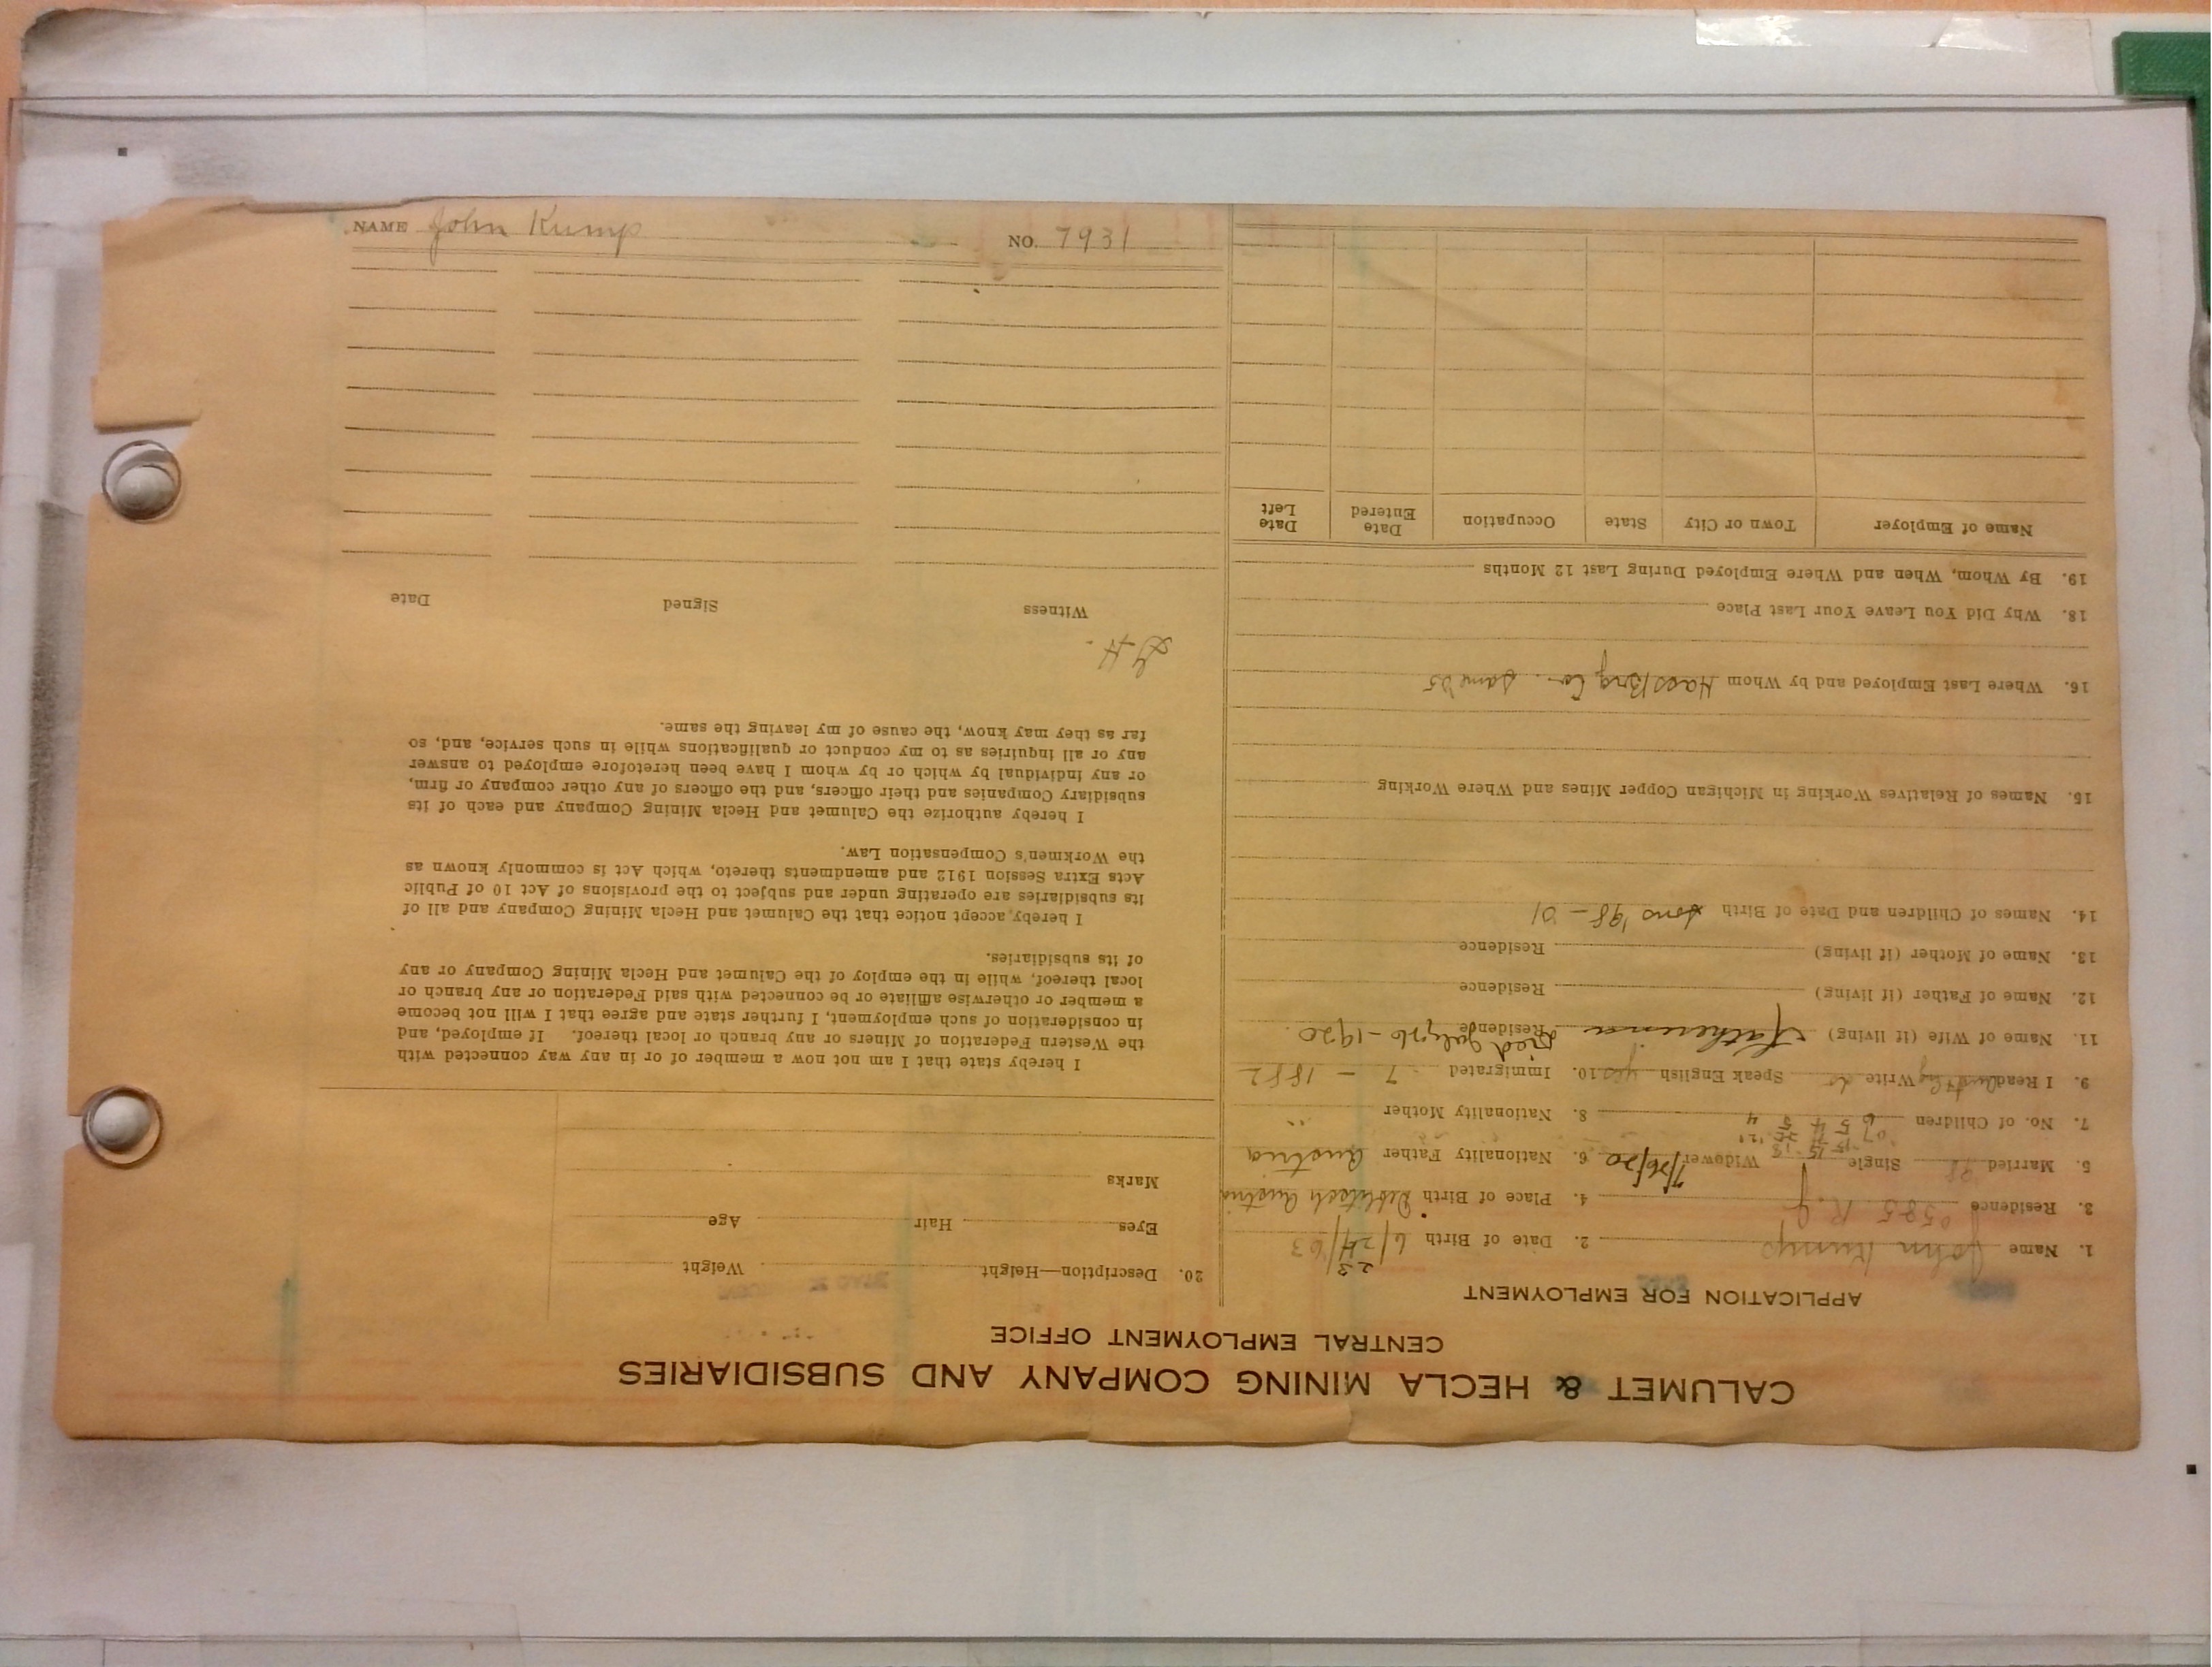 CALUMET & HECLA MINING COMPANY AND SUBSIDIARIES
CENTRAL EMPLOYMENT OFFICE
APPLICATION FOR EMPLOYMENT
1. Name John Kump 2. Date of Birth 6/24/63
23
3. Residence 0585 R. J. 4. Place of Birth Austria
5. Married 98 Single Widower 7/26/20 6. Nationality Father Austria
07 15 15 13 '21
7. No. of Children 6 5 4 5 4 8. Nationality Mother "
9. I Read Write do Speak English yes 10. Immigrated 7 - 1882
11. Name of Wife (if living) Katherine Residence Died July 26-1920
12. Name of Father (if living) Residence
13. Name of Mother (if living) Residence
14. Names of Children and Date of Birth sons '98 - 01
15. Names of Relatives Working in Michigan Copper Mines and Where Working
16. Where Last Employed and by Whom Haas Brg Co.
18. Why Did You Leave Your Last Place
19. By Whom, When and Where Employed During Last 12 Months
Name of Employer Town or City State Occupation Date Entered Date Left
20. Description—Height Weight
Eyes Hair Age
Marks
I hereby state that I am not now a member of or in any way connected with
the Western Federation of Miners or any branch or local thereof. If employed, and
in consideration of such employment, I further state and agree that I will not become
a member or otherwise affiliate or be connected with said Federation or any branch or
local thereof, while in the employ of the Calumet and Hecla Mining Company or any
of its subsidiaries.
I hereby, accept notice that the Calumet and Hecla Mining Company and all of
its subsidiaries are operating under and subject to the provisions of Act 10 of Public
Acts Extra Session 1912 and amendments thereto, which Act is commonly known as
the Workmen's Compensation Law.
I hereby authorize the Calumet and Hecla Mining Company and each of its
subsidiary Companies and their officers, and the officers of any other company or firm,
or any individual by which or by whom I have been heretofore employed to answer
any or all inquiries as to my conduct or qualifications while in such service, and, so
far as they may know, the cause of my leaving the same.
Witness Signed Date
NAME John Kump NO. 7931